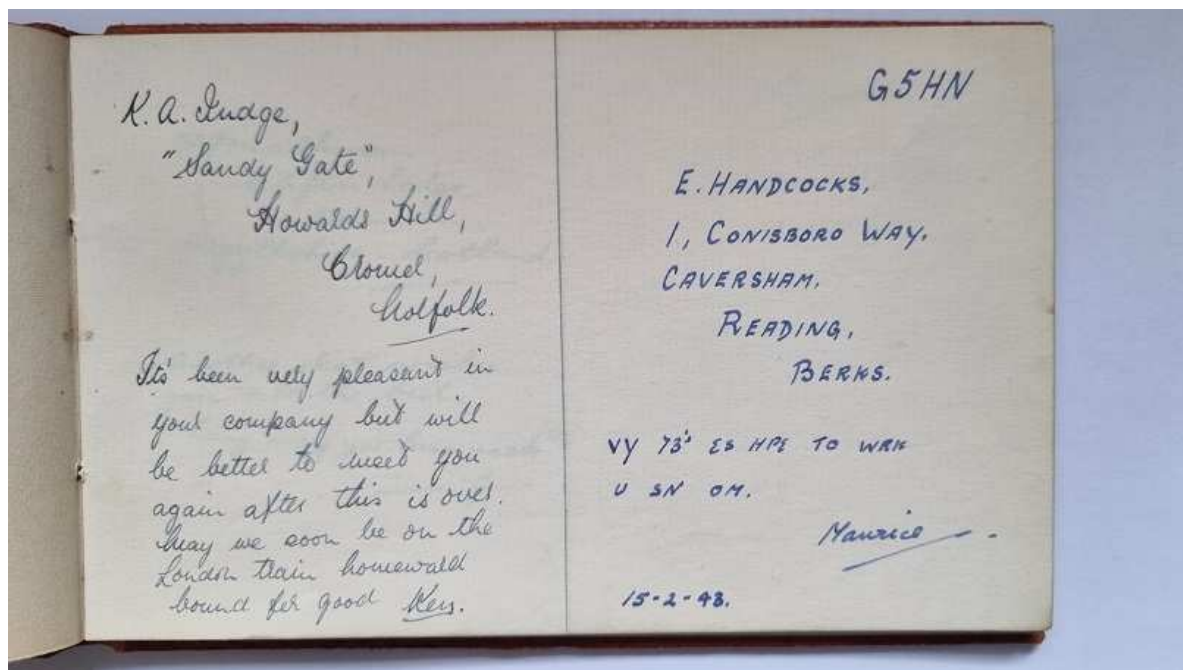 K. A. Judge,
"Sandy Gate",
Howards Hill,
Cromer,
Norfolk.
It's been very pleasant in
your company but will
be better to meet you
again after this is over.
May we soon be on the
London train homeward
bound for good Ken.
G5HN
E. HANDCOCKS,
1, CONISBORO WAY.
CAVERSHAM.
READING,
BERKS.
VY 73's ES HPE TO WRK
U SN OM.
Maurice
15-2-43.